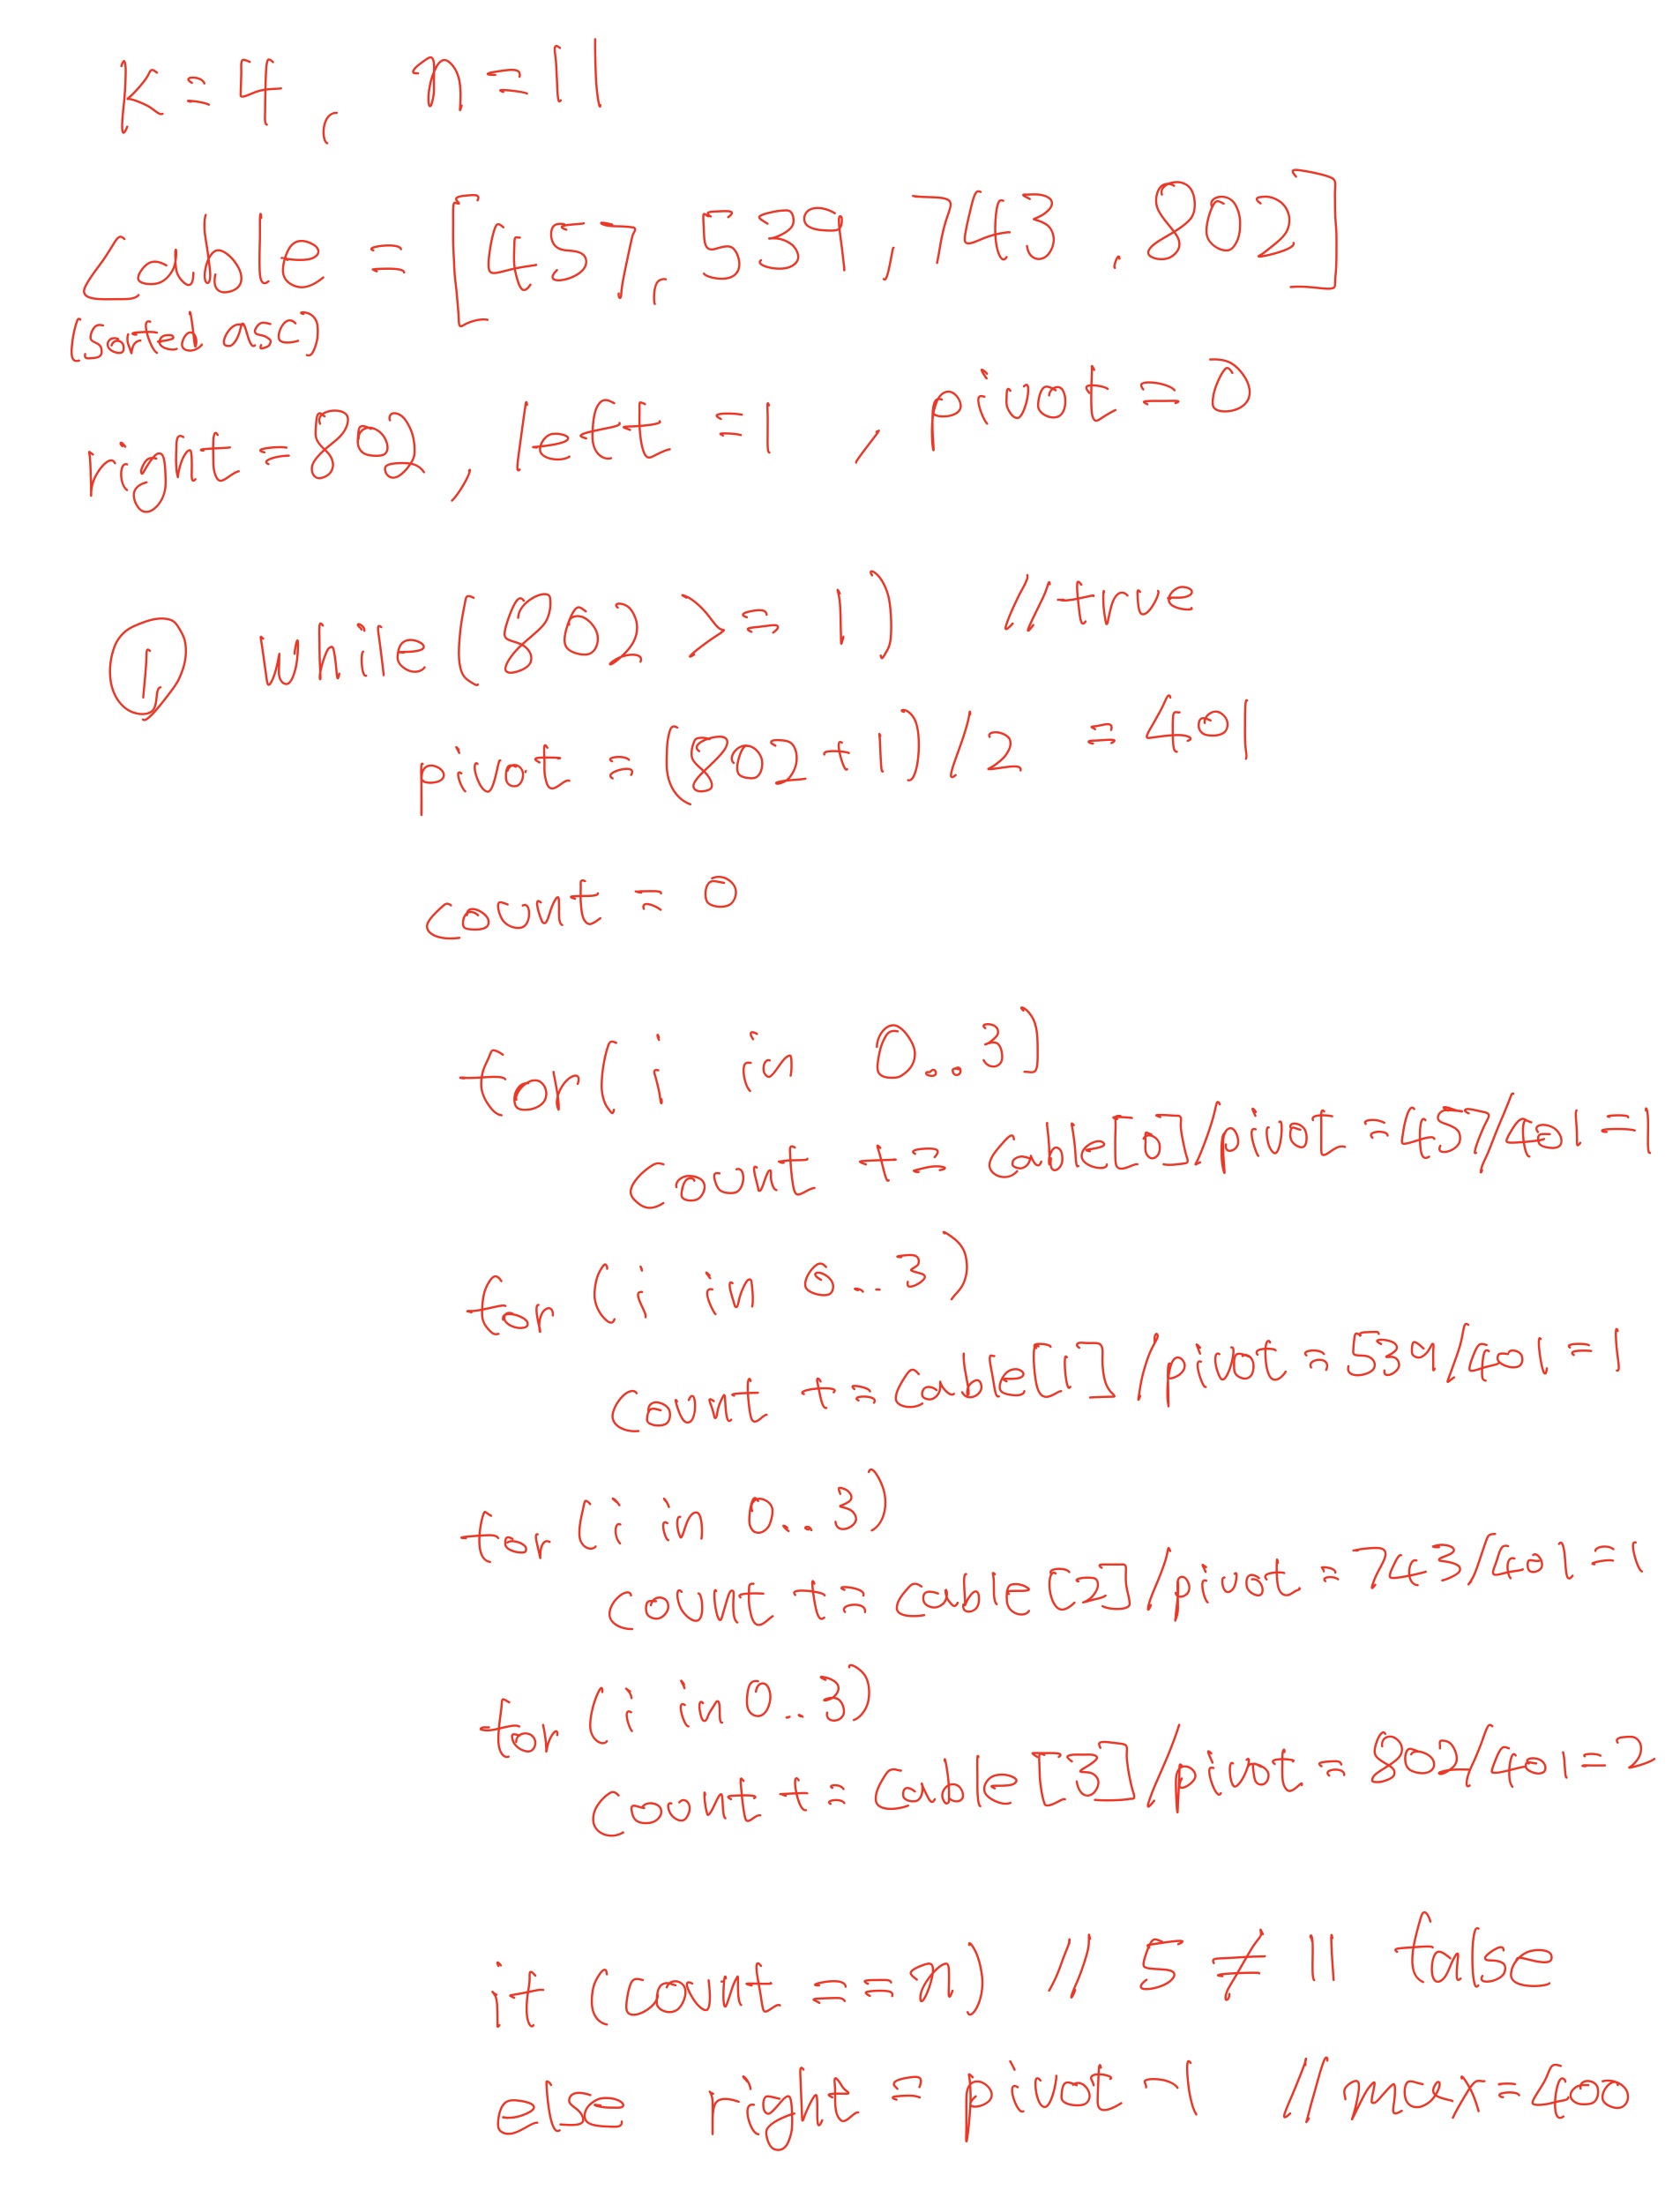 K=4, n=11
Cable = [457, 539, 743, 802]
(Sorted asc)
right=802, left=1, pivot=0
① while(802 >= 1) //true
pivot = (802+1)/2 = 401
count = 0
for(i in 0..3)
count += cable[0]/pivot=457/401=1
for(i in 0..3)
count += cable[1]/pivot=539/401=1
for(i in 0..3)
count += cable[2]/pivot=743/401=1
for(i in 0..3)
count += cable[3]/pivot=802/401=2
if (count==n) // 5≠11 false
else right = pivot-1 //max=400